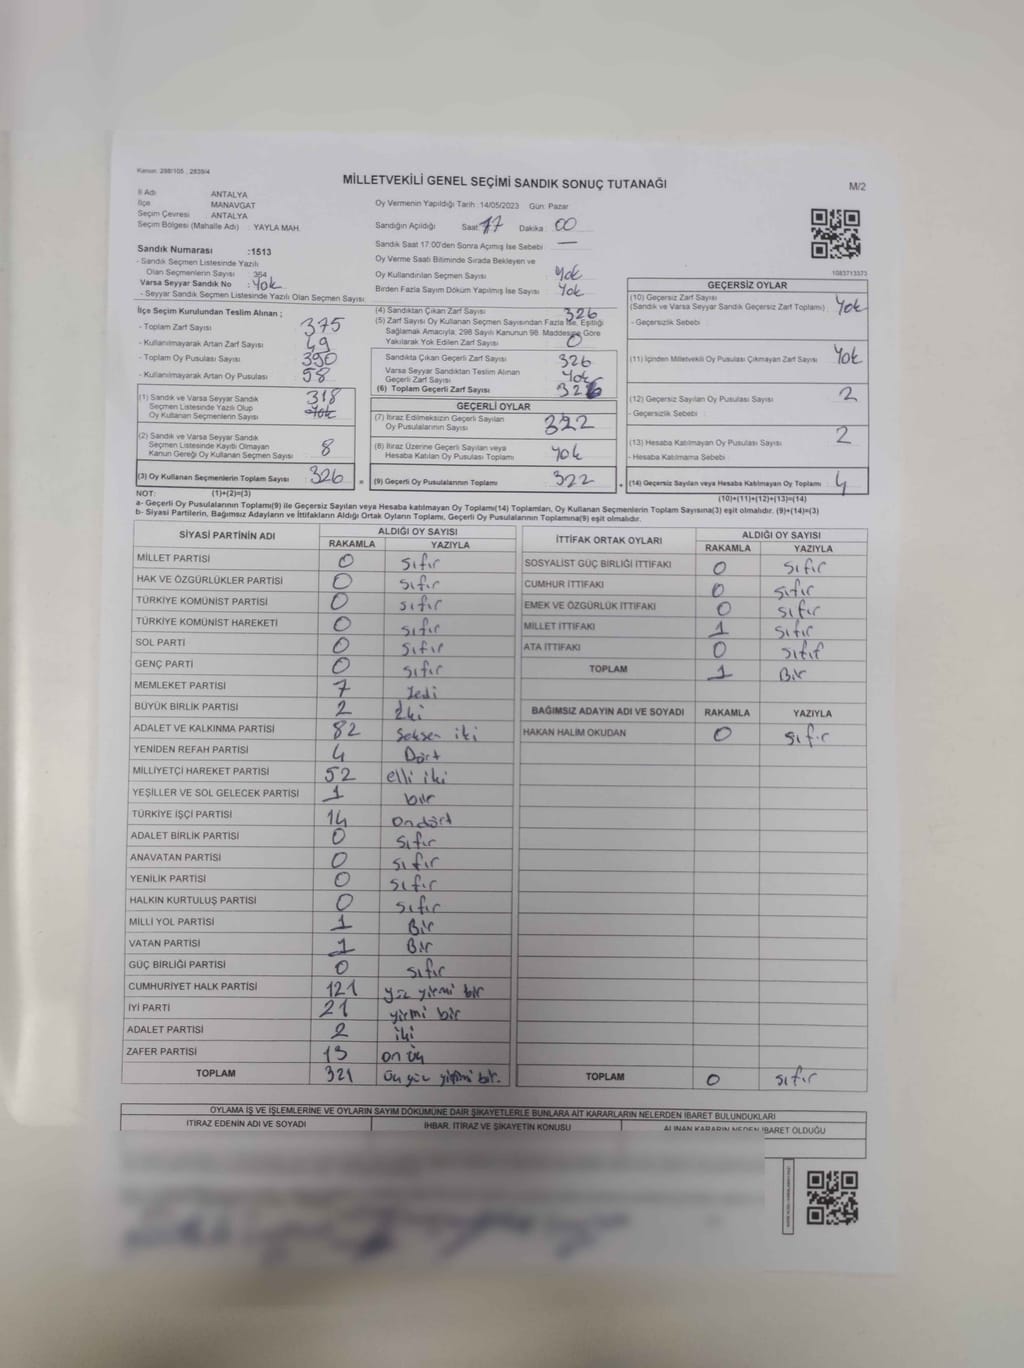 Kanun: 298/105 , 2839/4
MİLLETVEKİLİ GENEL SEÇİMİ SANDIK SONUÇ TUTANAĞI
M/2
İl Adı ANTALYA
İlçe MANAVGAT
Seçim Çevresi : ANTALYA
Seçim Bölgesi (Mahalle Adı) : YAYLA MAH.
Sandık Numarası :1513
- Sandık Seçmen Listesinde Yazılı
Olan Seçmenlerin Sayısı : 364
Varsa Seyyar Sandık No : Yok
- Seyyar Sandık Seçmen Listesinde Yazılı Olan Seçmen Sayısı
Oy Vermenin Yapıldığı Tarih :14/05/2023 Gün: Pazar
Sandığın Açıldığı Saat 17 Dakika : 00
Sandık Saat 17:00'den Sonra Açımış İse Sebebi —
Oy Verme Saati Bitiminde Sırada Bekleyen ve
Oy Kullandırılan Seçmen Sayısı Yok
Birden Fazla Sayım Döküm Yapılmış İse Sayısı Yok
1083713373
İlçe Seçim Kurulundan Teslim Alınan ;
- Toplam Zarf Sayısı 375
- Kullanılmayarak Artan Zarf Sayısı 49
- Toplam Oy Pusulası Sayısı 390
- Kullanılmayarak Artan Oy Pusulası 58
(1) Sandık ve Varsa Seyyar Sandık 318
Seçmen Listesinde Yazılı Olup
Oy Kullanan Seçmenlerin Sayısı Yok
(2) Sandık ve Varsa Seyyar Sandık
Seçmen Listesinde Kayıtlı Olmayan
Kanun Gereği Oy Kullanan Seçmen Sayısı 8
(3) Oy Kullanan Seçmenlerin Toplam Sayısı 326
(4) Sandıktan Çıkan Zarf Sayısı 326
(5) Zarf Sayısı Oy Kullanan Seçmen Sayısından Fazla İse, Eşitliği
Sağlamak Amacıyla, 298 Sayılı Kanunun 98. Maddesine Göre
Yakılarak Yok Edilen Zarf Sayısı 0
Sandıkta Çıkan Geçerli Zarf Sayısı 326
Varsa Seyyar Sandıktan Teslim Alınan
Geçerli Zarf Sayısı Yok
(6) Toplam Geçerli Zarf Sayısı 326
GEÇERLİ OYLAR
(7) İtiraz Edilmeksizin Geçerli Sayılan
Oy Pusulalarının Sayısı 322
(8) İtiraz Üzerine Geçerli Sayılan veya
Hesaba Katılan Oy Pusulası Toplamı Yok
= (9) Geçerli Oy Pusulalarının Toplamı 322
GEÇERSİZ OYLAR
(10) Geçersiz Zarf Sayısı
(Sandık ve Varsa Seyyar Sandık Geçersiz Zarf Toplamı) Yok
- Geçersizlik Sebebi :
(11) İçinden Milletvekili Oy Pusulası Çıkmayan Zarf Sayısı Yok
(12) Geçersiz Sayılan Oy Pusulası Sayısı 2
- Geçersizlik Sebebi :
(13) Hesaba Katılmayan Oy Pusulası Sayısı 2
- Hesaba Katılmama Sebebi :
+ (14) Geçersiz Sayılan veya Hesaba Katılmayan Oy Toplamı 4
NOT: (1)+(2)=(3) (10)+(11)+(12)+(13)=(14)
a- Geçerli Oy Pusulalarının Toplamı(9) ile Geçersiz Sayılan veya Hesaba katılmayan Oy Toplamı(14) Toplamları, Oy Kullanan Seçmenlerin Toplam Sayısına(3) eşit olmalıdır. (9)+(14)=(3)
b- Siyasi Partilerin, Bağımsız Adayların ve İttifakların Aldığı Ortak Oyların Toplamı, Geçerli Oy Pusulalarının Toplamına(9) eşit olmalıdır.
SİYASİ PARTİNİN ADI ALDIĞI OY SAYISI
RAKAMLA YAZIYLA
MİLLET PARTİSİ 0 sıfır
HAK VE ÖZGÜRLÜKLER PARTİSİ 0 sıfır
TÜRKİYE KOMÜNİST PARTİSİ 0 sıfır
TÜRKİYE KOMÜNİST HAREKETİ 0 sıfır
SOL PARTİ 0 sıfır
GENÇ PARTİ 0 sıfır
MEMLEKET PARTİSİ 7 Yedi
BÜYÜK BİRLİK PARTİSİ 2 İki
ADALET VE KALKINMA PARTİSİ 82 Seksen iki
YENİDEN REFAH PARTİSİ 4 Dört
MİLLİYETÇİ HAREKET PARTİSİ 52 elli iki
YEŞİLLER VE SOL GELECEK PARTİSİ 1 bir
TÜRKİYE İŞÇİ PARTİSİ 14 ondört
ADALET BİRLİK PARTİSİ 0 sıfır
ANAVATAN PARTİSİ 0 sıfır
YENİLİK PARTİSİ 0 sıfır
HALKIN KURTULUŞ PARTİSİ 0 sıfır
MİLLİ YOL PARTİSİ 1 Bir
VATAN PARTİSİ 1 Bir
GÜÇ BİRLİĞİ PARTİSİ 0 sıfır
CUMHURİYET HALK PARTİSİ 121 yüz yirmi bir
İYİ PARTİ 21 yirmi bir
ADALET PARTİSİ 2 iki
ZAFER PARTİSİ 13 on üç
TOPLAM 321 üç yüz yirmi bir.
İTTİFAK ORTAK OYLARI ALDIĞI OY SAYISI
RAKAMLA YAZIYLA
SOSYALİST GÜÇ BİRLİĞİ İTTİFAKI 0 sıfır
CUMHUR İTTİFAKI 0 sıfır
EMEK VE ÖZGÜRLÜK İTTİFAKI 0 sıfır
MİLLET İTTİFAKI 1 sıfır
ATA İTTİFAKI 0 sıfır
TOPLAM 1 Bir
BAĞIMSIZ ADAYIN ADI VE SOYADI RAKAMLA YAZIYLA
HAKAN HALİM OKUDAN 0 sıfır
TOPLAM 0 sıfır
OYLAMA İŞ VE İŞLEMLERİNE VE OYLARIN SAYIM DÖKÜMÜNE DAİR ŞİKAYETLERLE BUNLARA AİT KARARLARIN NELERDEN İBARET BULUNDUKLARI
İTİRAZ EDENİN ADI VE SOYADI İHBAR, İTİRAZ VE ŞİKAYETİN KONUSU ALINAN KARARIN NEDEN İBARET OLDUĞU